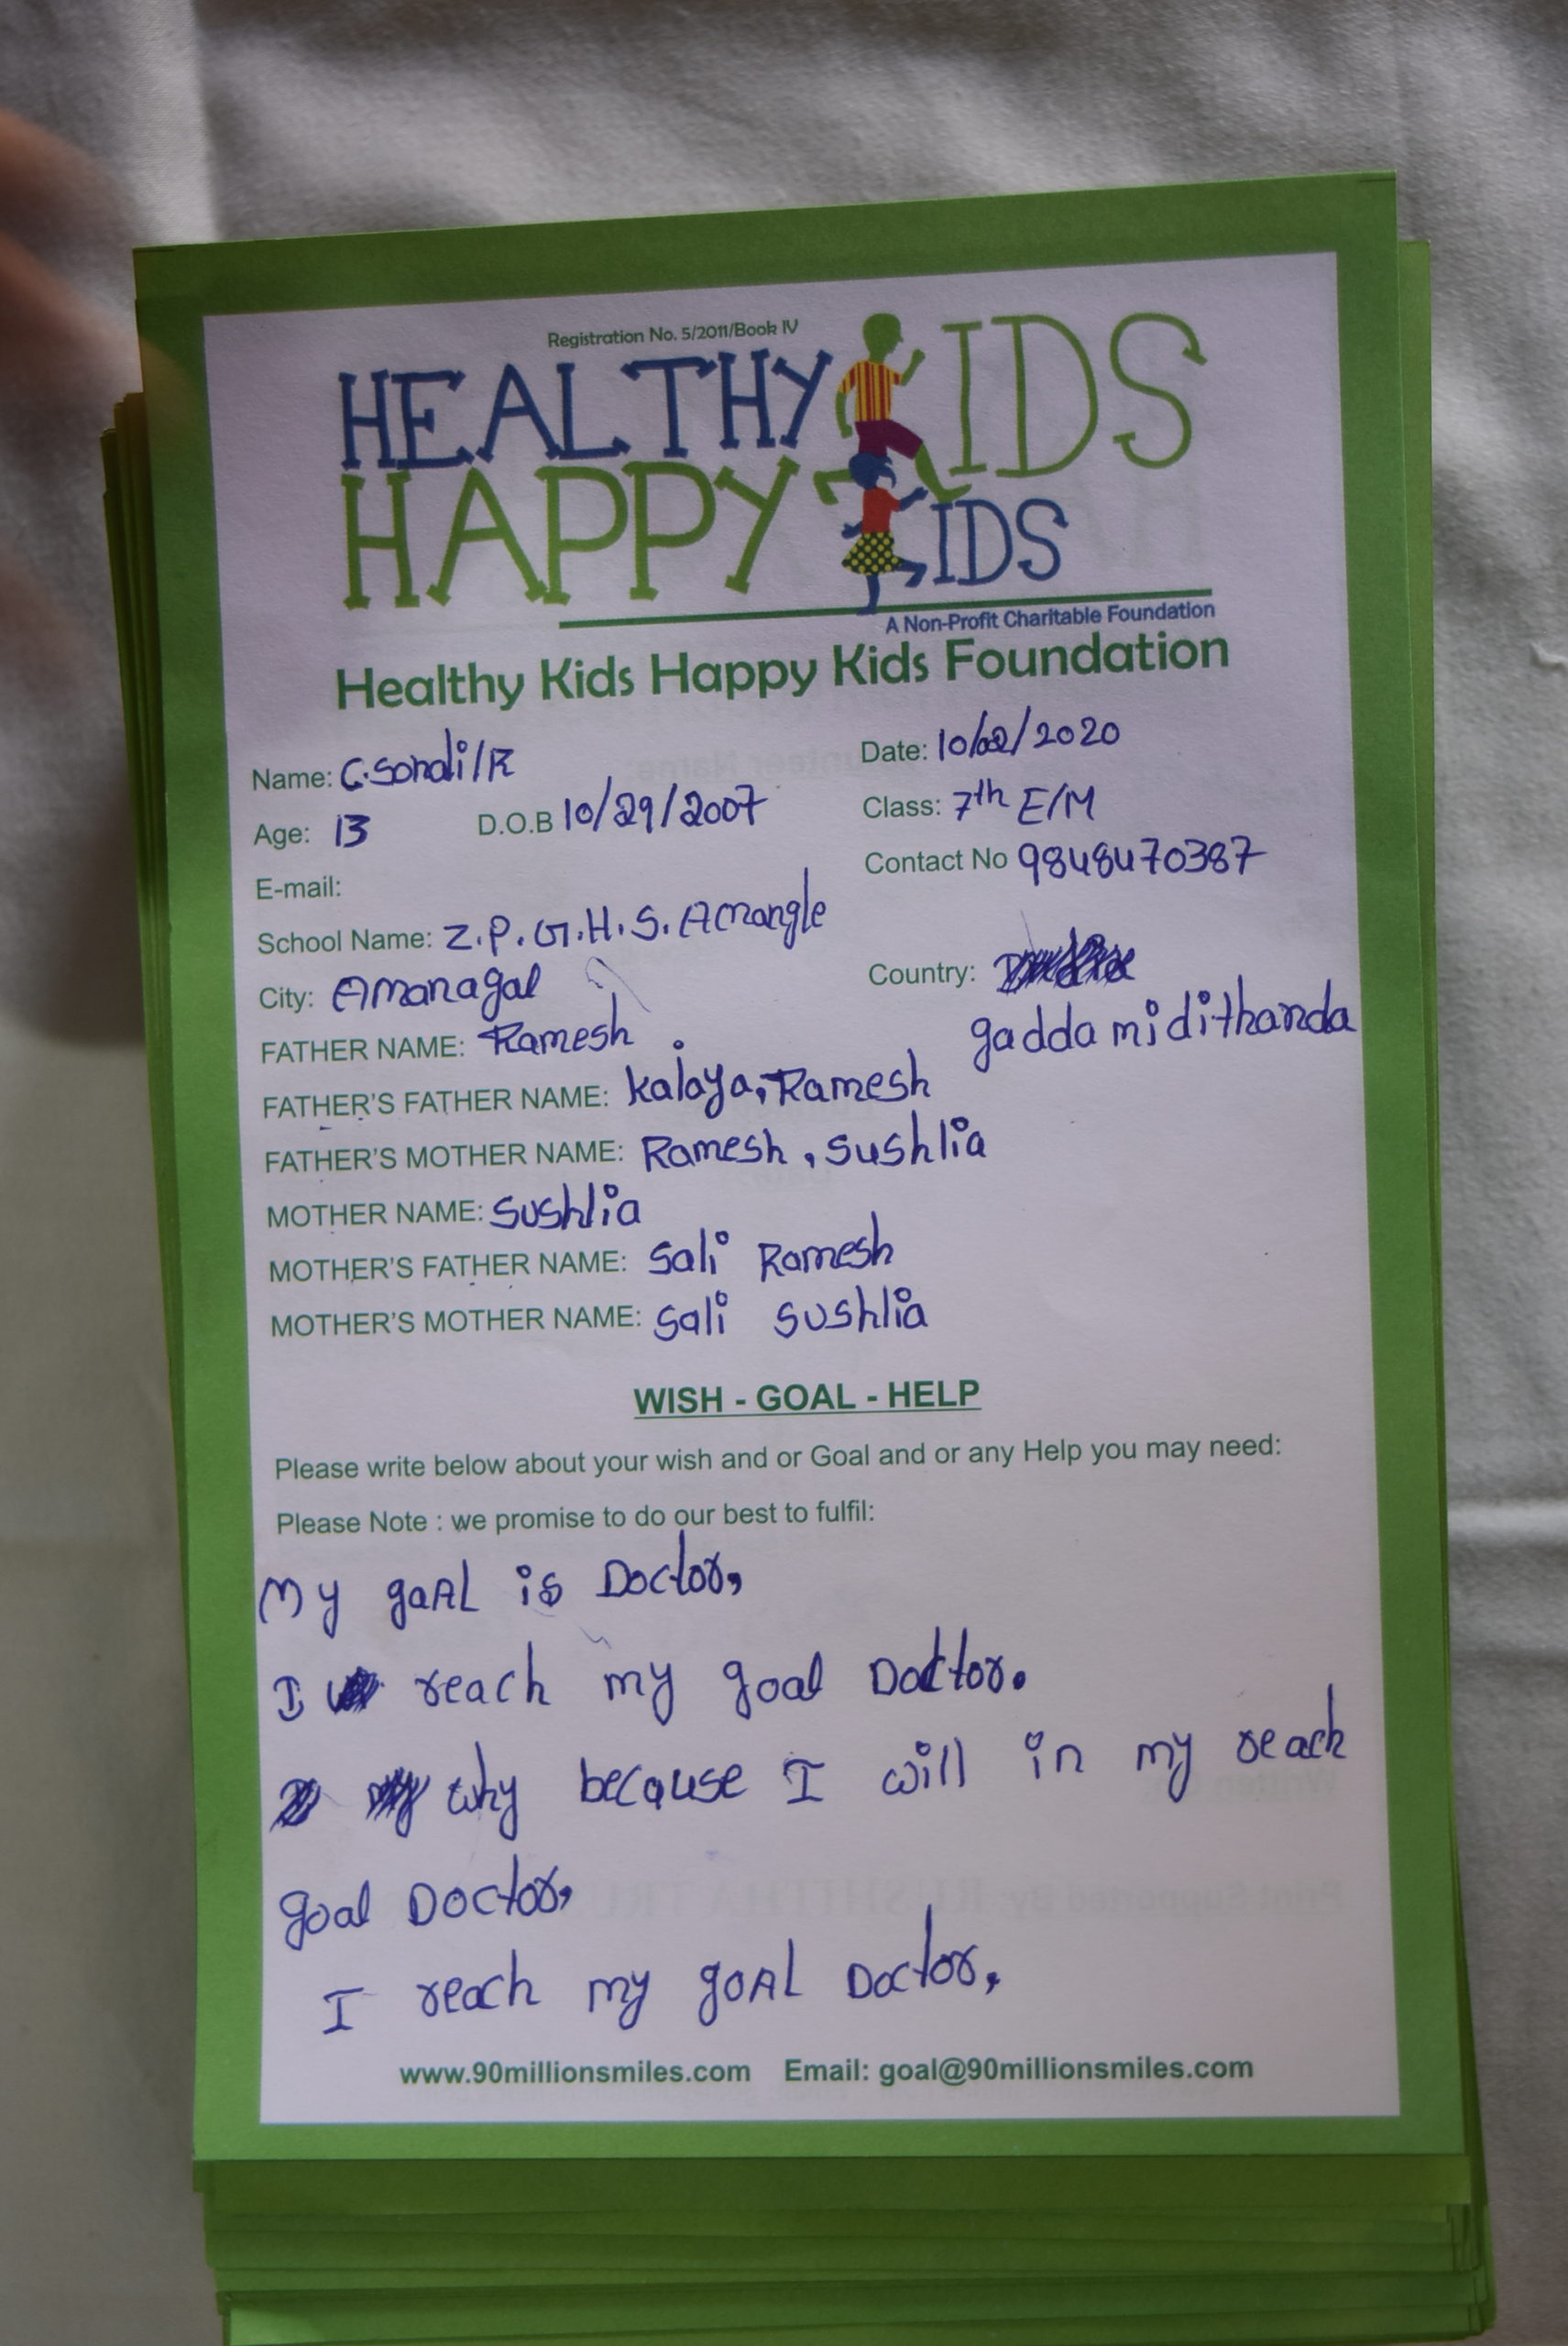 Registration No. 5/2011/Book IV
HEALTHY KIDS
HAPPY KIDS
A Non-Profit Charitable Foundation
Healthy Kids Happy Kids Foundation
Name: C.Sondi/R Date: 10/02/2020
Age: 13 D.O.B 10/29/2007 Class: 7th E/M
E-mail: Contact No 9848470387
School Name: Z.P.G.H.S. Amangle
City: Amanagal Country:
gaddamidithanda
FATHER NAME: Ramesh
FATHER'S FATHER NAME: kalaya, Ramesh
FATHER'S MOTHER NAME: Ramesh, Sushlia
MOTHER NAME: Sushlia
MOTHER'S FATHER NAME: Sali Ramesh
MOTHER'S MOTHER NAME: Sali Sushlia
WISH - GOAL - HELP
Please write below about your wish and or Goal and or any Help you may need:
Please Note : we promise to do our best to fulfil:
My goAL is Doctor,
I reach my goal Doctor.
why because I will in my reach
goal Doctor,
I reach my goAL Doctor,
www.90millionsmiles.com Email: goal@90millionsmiles.com